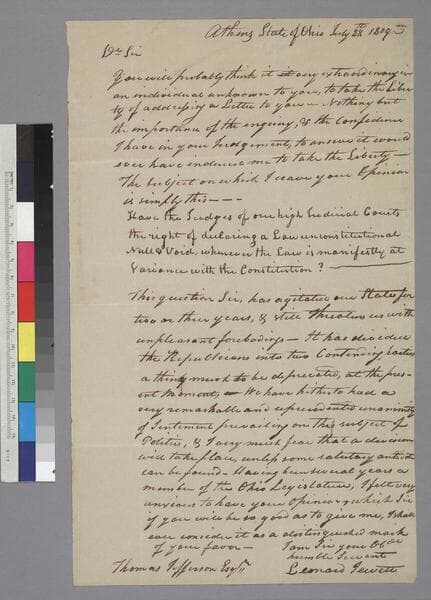 Athens State of Ohio July 28th 1809
Dr Sir
You will probably think it very extraordinary in
an individual unknown to you, to take the Liber
ty of addressing a Letter to you — Nothing but
the importance of the enquiry, & the Confidence
I have in your Judgement, to answer it would
ever have induced me to take the Liberty —
The Subject on which I crave your Opinion
is simply this - - -
Have the Judges of our high Judicial Courts
the right of declaring a Law unconstitutional
Null & Void, whenever the Law is manifestly at
Variance with the Constitution? —
This question Sir, has agitated our State for
two or three years, & still threatens us with
unpleasant forebodings — It has divided
the Republicans into two Contending parties
a thing much to be deprecated, at the pres-
ent moment, — We have hitherto had a
very remarkable and unprecedented unanimity
of Sentiment prevailing on the subject of
Politics, & I very much fear that a division
will take place, unless some salutary antidote
can be found — Having been several years a
member of the Ohio Legislature, I felt very
anxious to have your Opinion, which Sir
if you will be so good as to give me, I shall
ever consider it as a distinguished mark
of your favor —
I am Sir your Obdt
humble Servant
Thomas Jefferson Esqr
Leonard Jewett